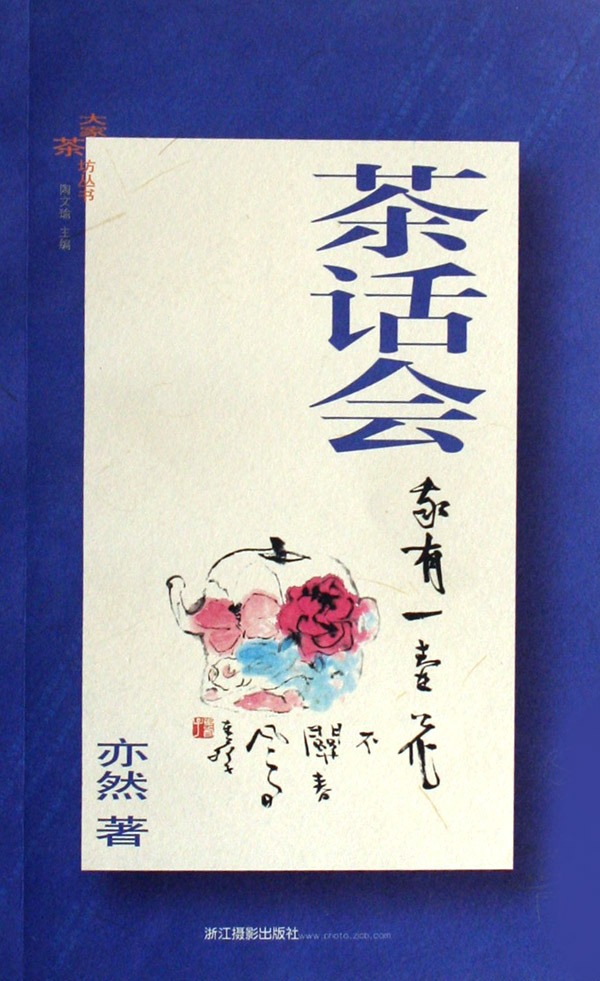 大家茶坊丛书
陶文瑜 主编
茶话会
家有一壶
不
春
亦然 著
浙江摄影出版社www.photo.zjcb.com